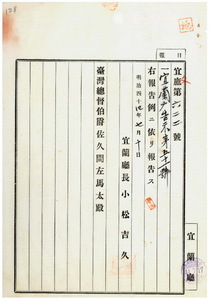 日報
宜庶第六二二號
一宜蘭廳告示第五十二號
右報告例ニ依リ報告ス
明治四十四年七月十日
宜蘭廳長小松吉久
臺灣總督伯爵佐久間左馬太殿
宜蘭廳